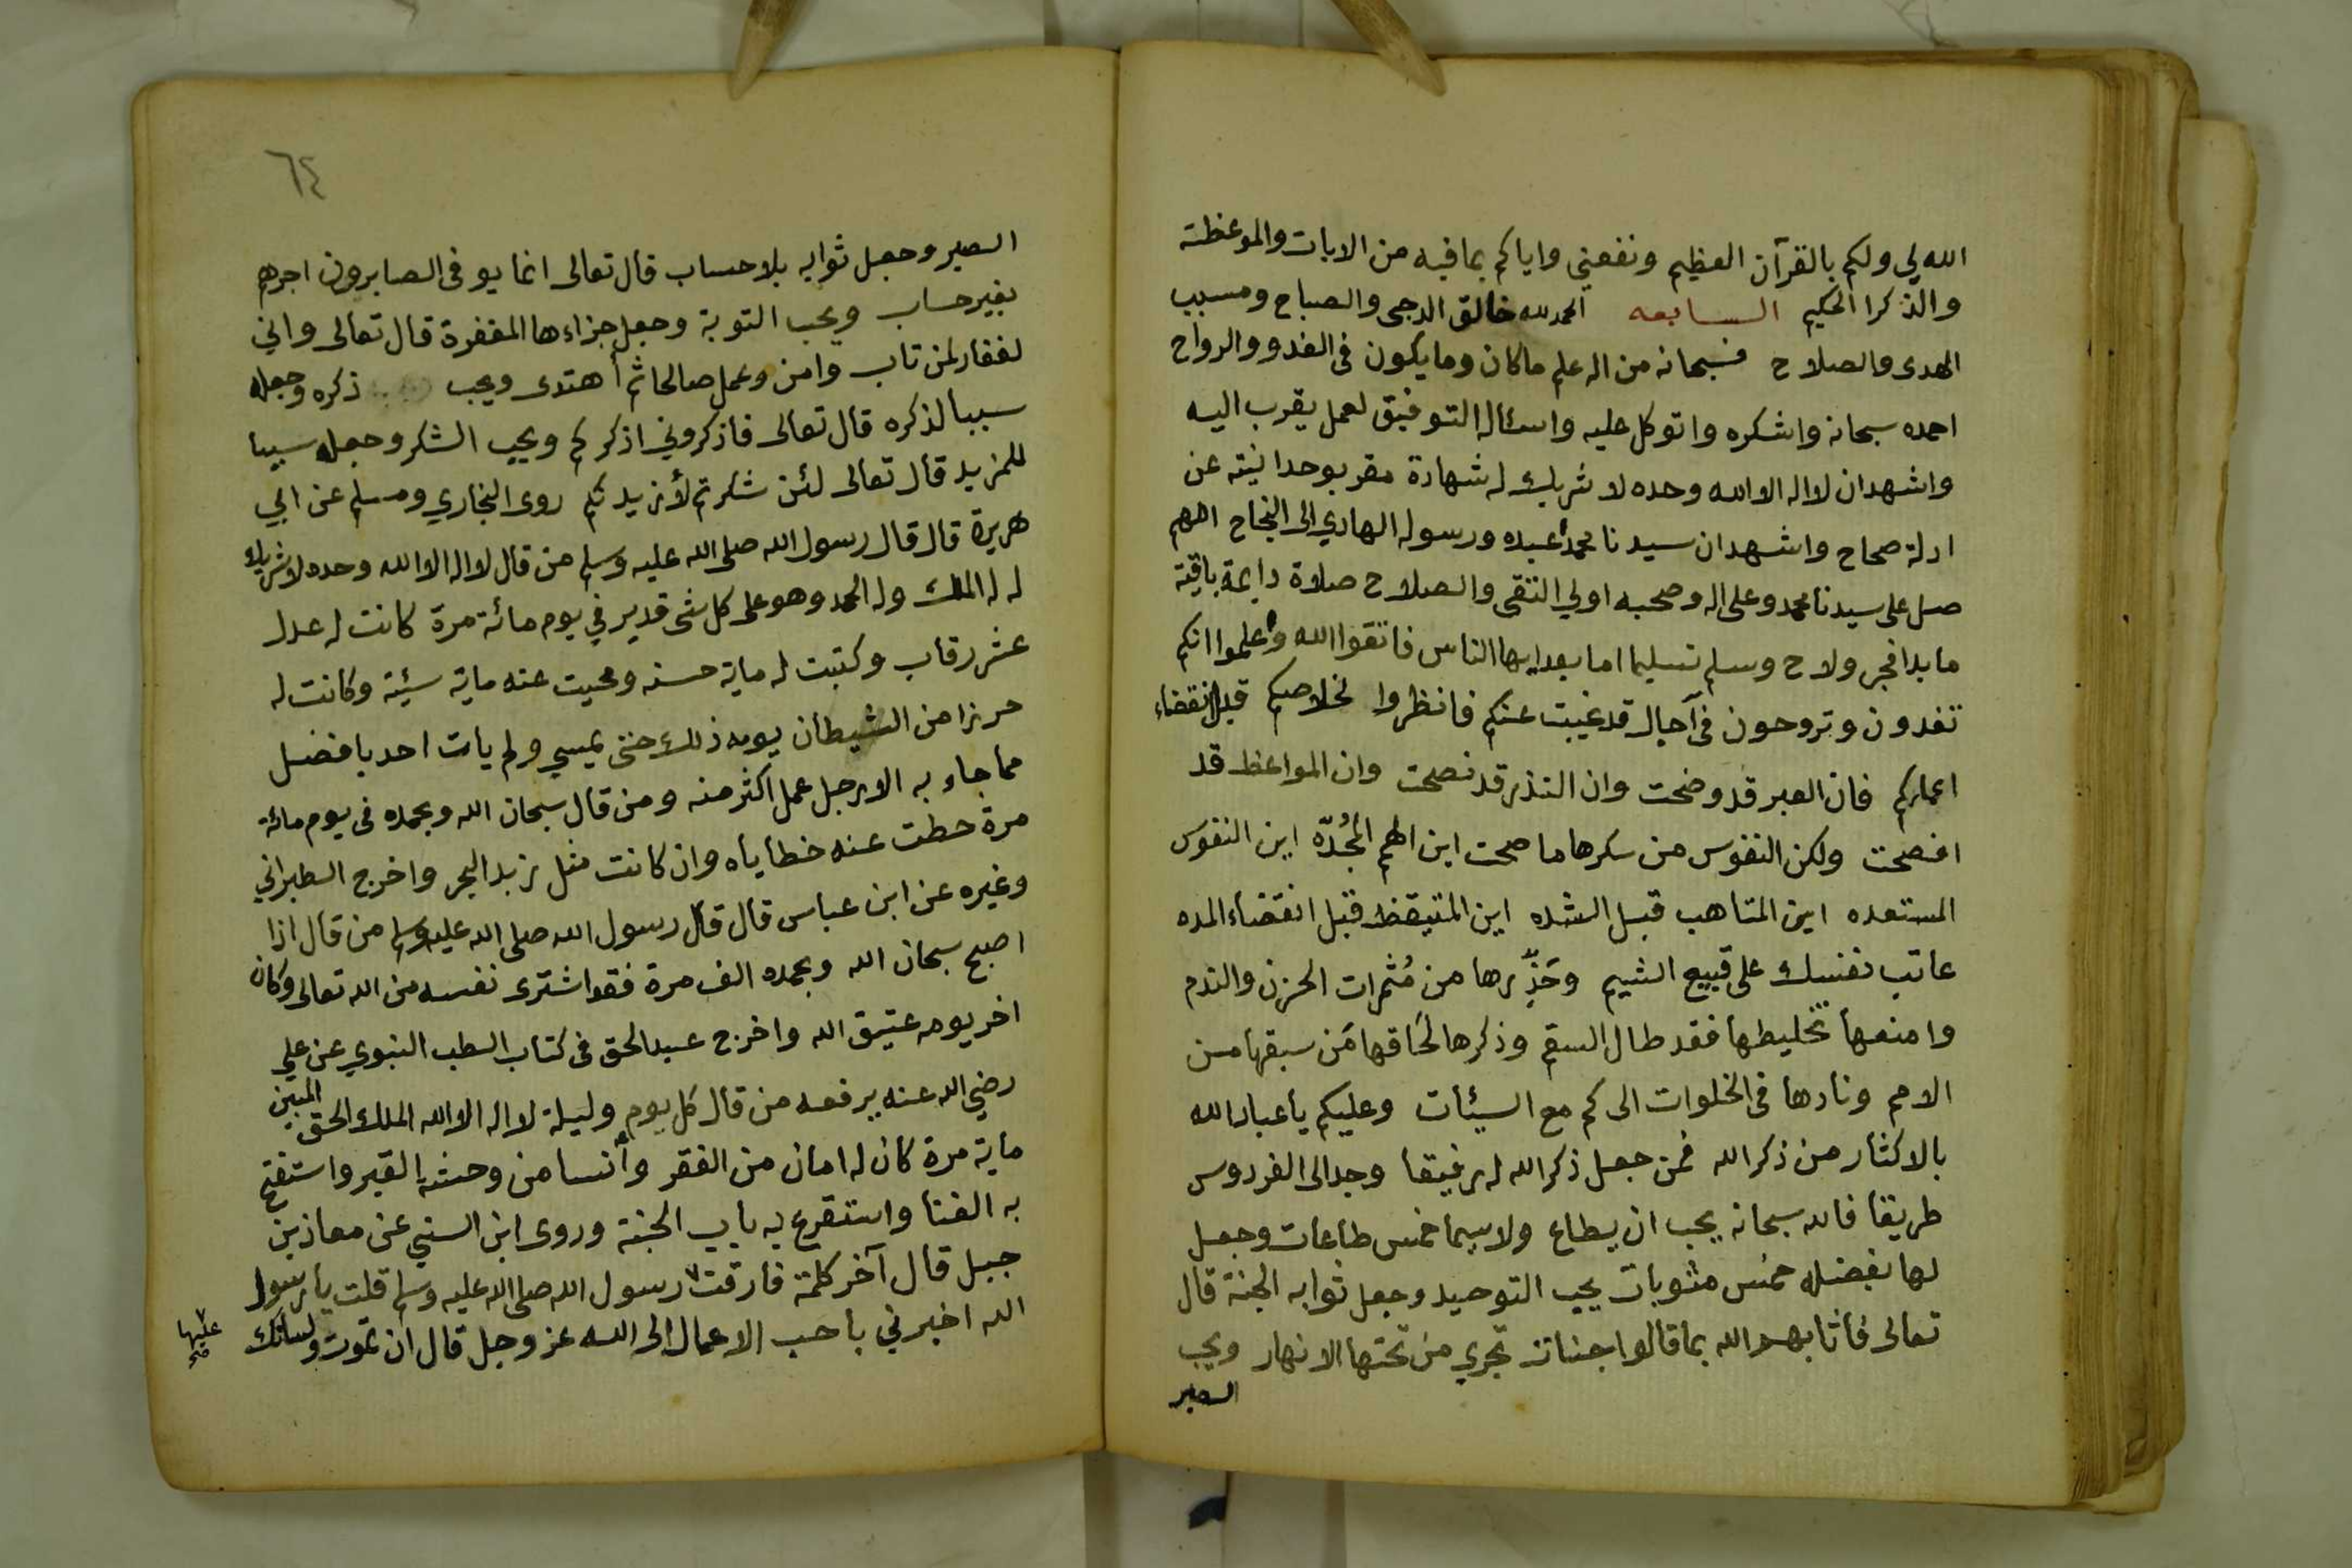 الله لي ولكم بالقرآن العظيم ونفعني واياكم بما فيه من الايات والموعظة
والذكر الحكيم السابعه الحمد لله خالق الدجى والصباح ومسبب
الهدى والصلاح فسبحانه من اله علم ماكان وما يكون في الغدو والرواح
احمده سبحانه واشكره واتوكل عليه واسئاله التوفيق لعمل يقرب اليه
واشهد ان لااله الا الله وحده لا شريك له شهادة مقر بوحدانيته عن
ادلة صحاح واشهد ان سيدنا محمداً عبده ورسوله الهادي الى النجاح اللهم
صل على سيدنا محمد وعلى اله وصحبه اولي التقى والصلاح صلاة دايمة باقية
ما بدا فجر ولاح وسلم تسليما اما بعد ايها الناس فاتقوا الله وأعلموا انكم
تغدون وتروحون في آجال قد غيبت عنكم فانظروا لخلاصكم قبل انقضاء
اعماركم فان العبر قد وضحت وان النذر قد نصحت وان المواعظ قد
افصحت ولكن النفوس من سكرها ما صحت اين الهمم المُجُدّه اين النفوس
المستعده اين المتاهب قبل الشده اين المتيقظ قبل انقضاء المده
عاتب نفسك على قبيح الشيم وحَذِّرها من مُثمرات الحزن والندم
وامنعها تخليطها فقد طال السقم وذكرها لحَاقها مَن سبقها من
الامم ونادها في الخلوات الى كم مع السيئات وعليكم ياعباد الله
بالاكثار من ذكر الله فمن جعل ذكر الله له رفيقا وجد الى الفردوس
طريقا فالله سبحانه يحب ان يطاع ولا سيما خمس طاعات وجعل
لها بفضله خمس مثوبات يحب التوحيد وجعل ثوابه الجنة قال
تعالى فأثابهم الله بما قالوا جنات تجري من تحتها الانهار ويحب
الصبر
٦٤
الصبر وجعل ثوابه بلا حساب قال تعالى انما يوفى الصابرون اجرهم
بغير حساب ويحب التوبة وجعل جزاءها المغفرة قال تعالى واني
لغفار لمن تاب وامن وعمل صالحا ثم أهتدى ويحب ذكره وجعله
سببا لذكره قال تعالى فاذكروني اذكركم ويحب الشكر وجعله سببا
للمزيد قال تعالى لئن شكرتم لأزيدنكم روى البخاري ومسلم عن ابي
هريرة قال قال رسول الله صلى الله عليه وسلم من قال لااله الا الله وحده لاشريك
له له الملك وله الحمد وهو على كل شى قدير في يوم مائة مرة كانت له عدل
عشر رقاب وكتبت له ماية حسنه ومحيت عنه ماية سيئة وكانت له
حرزا من الشيطان يومه ذلك حتى يمسي ولم يات احد بافضل
مما جاء به الا رجل عمل اكثر منه ومن قال سبحان الله وبحمده في يوم مائة
مرة حطت عنه خطاياه وان كانت مثل زبد البحر واخرج الطبراني
وغيره عن ابن عباس قال قال رسول الله صلى الله عليه وسلم من قال اذا
اصبح سبحان الله وبحمده الف مرة فقد اشترى نفسه من الله تعالى وكان
اخر يومه عتيق الله واخرج عبد الحق في كتاب الطب النبوي عن علي
رضي الله عنه يرفعه من قال كل يوم وليلة لااله الا الله الملك الحق المبين
ماية مرة كان له امان من الفقر وأنسا من وحشة القبر واستفتح
به الغنا واستقرع به باب الجنة وروى ابن السني عن معاذ بن
جبل قال آخر كلمة فارقت رسول الله صلى الله عليه وسلم قلت يارسول
الله اخبرني باحب الاعمال الى الله عز وجل قال ان تموت ولسانك
عليها
صح